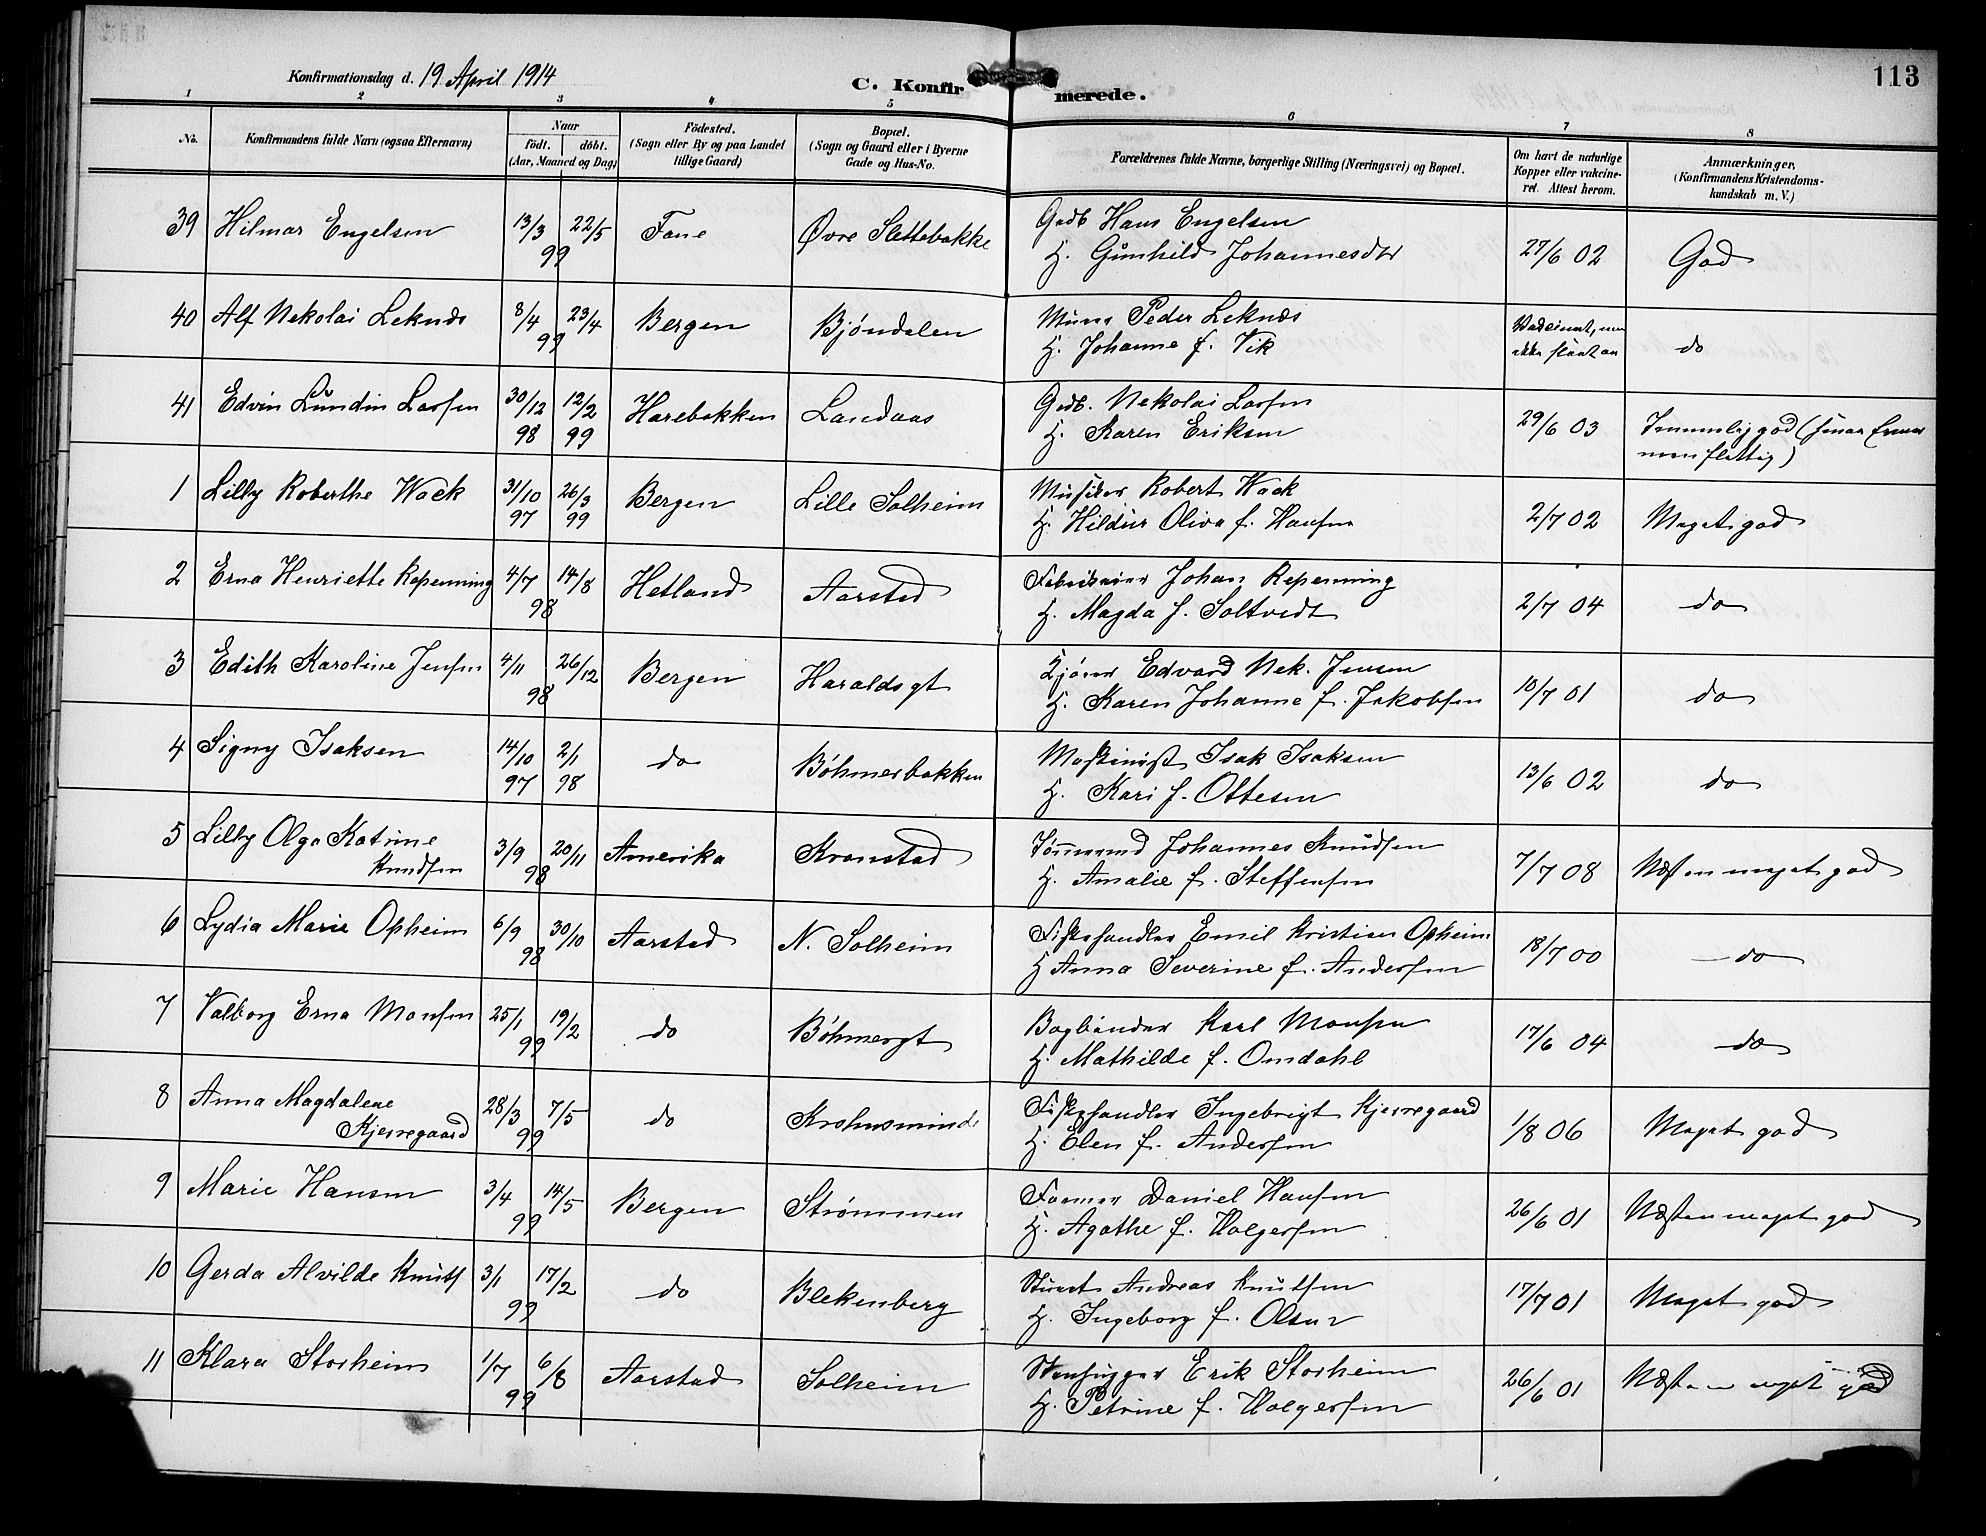 Konfirmationsdag d. 19 April 1914
C. Konfirmerede.
113
1 2 3 4 5 6 7 8
No.
Konfirmandens fulde Navn (ogsaa Efternavn)
Naar
födt. döbt.
(Aar, Maaned og Dag)
Födested.
(Sogn eller By og paa Landet
tillige Gaard)
Bopæl.
(Sogn og Gaard eller i Byerne
Gade og Hus-No.
Forældrenes fulde Navne, borgerlige Stilling (Næringsvei) og Bopæl.
Om havt de naturlige
Kopper eller vakcine-
ret. Attest herom.
Anmærkninger,
(Konfirmandens Kristendoms-
kundskab m. V.)
39 Hilmar Engelsen 13/3 22/5 99 Fane Øvre Slettebakke
Gdb Hans Engelsen
H. Gunhild Johannesdtr
27/6 02 God
40 Alf Nekolai Leknæs 8/4 23/4 99 Bergen Bjöndalen
Peder Leknæs
H. Johanne f. Vik
do
41 Edvin Lundin Larsen 30/12 98 12/2 99 Harebakken Landaas
Gdb. Nekolai Larsen
H. Karen Eriksen
29/6 03 Temmelig god
flittig)
1 Lilly Roberthe Wack 31/10 97 26/3 99 Bergen Lille Solheim
Musiker Robert Wack
H. Hildur Oliva f. Hansen
2/7 02 Meget god
2 Erna Henriette Repenning 4/7 14/8 98 Hetland Aarstad
Johan Repenning
H. Magda f. Soltvedt
2/7 04 do
3 Edith Karoline Jensen 4/11 26/12 98 Bergen Haraldsgt
Edvard Nek. Jensen
H. Karen Johanne f. Jakobsen
10/7 01 do
4 Signy Isaksen 14/10 97 2/1 98 do Böhmerbakken
Maskinist Isak Isaksen
H. Kari f. Ottesen
13/6 02 do
5 Lilly Olga Katrine
Knudsen
3/9 20/11 98 Amerika Kronstad
Tömmermd Johannes Knudsen
H. Amalie f. Steffensen
7/7 08 Næsten meget god
6 Lydia Marie Opheim 6/9 30/10 98 Aarstad N. Solheim
Fiskehandler Emil Kristian Opheim
H Anna Severine f. Andersen
18/7 00 do
7 Valborg Erna Monsen 25/1 19/2 99 do Böhmergt
Bogbinder Karl Monsen
H. Mathilde f. Omdahl
17/6 04 do
8 Anna Magdalene
Kjerregaard
28/3 7/5 99 do Krohnsminde
Fiskehandler Ingebrigt Kjerregaard
H. Elen f. Andersen
1/8 06 Meget god
9 Marie Hansen 3/4 14/5 99 Bergen Strömmen
Daniel Hansen
H. Agathe f. Holgersen
26/6 01 Næsten meget god
10 Gerda Alvilde Knuts 3/1 17/2 99 do Blekenberg
Andreas Knutsen
H. Ingeborg f. Olsen
17/7 01 Meget god
11 Klara Storheim 1/7 6/8 99 Aarstad Solheim
Stenhugger Erik Storheim
H. Petrine f. Holgersen
26/6 01 Næsten meget god